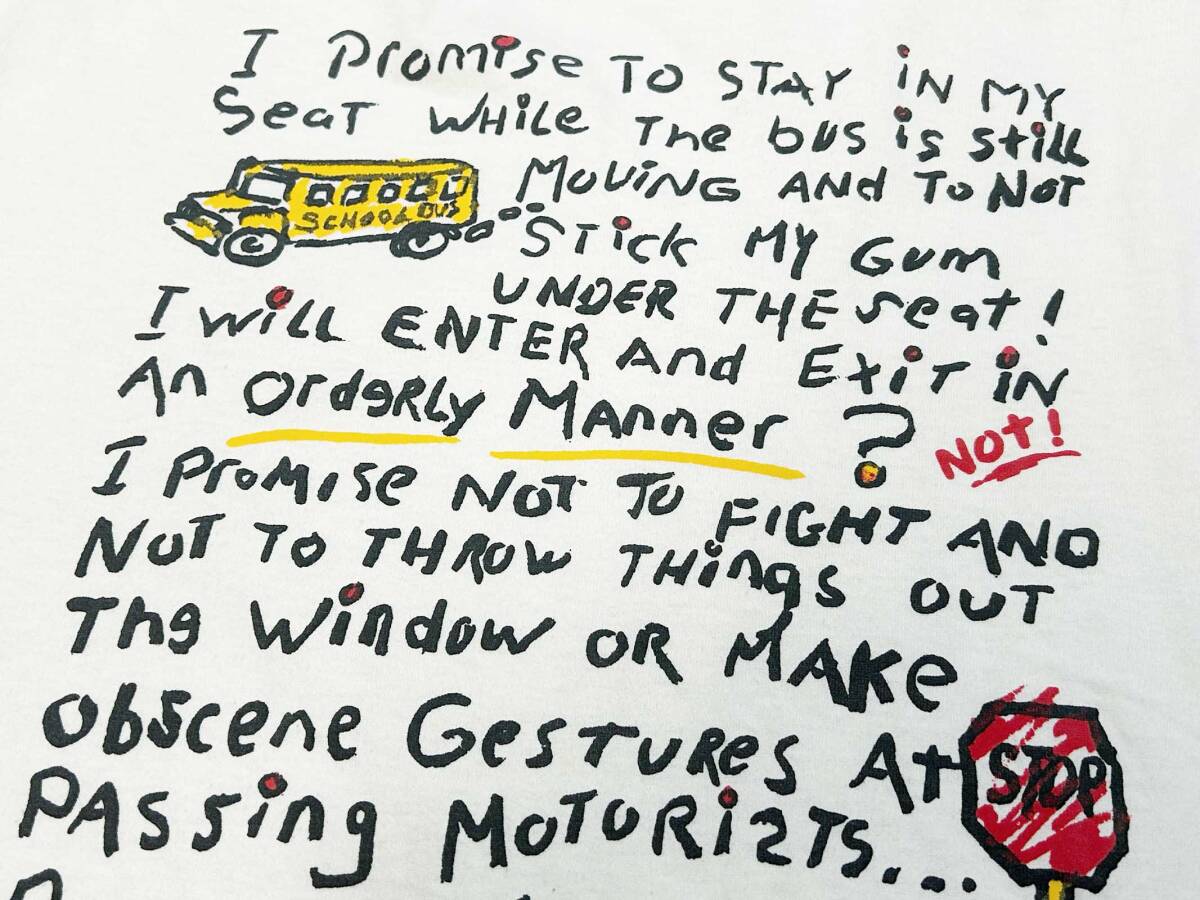 I Promise TO STAY iN MY
Seat WHiLe The bus is still
SCHOOL BUS
MOVING AND To NOT
Stick MY Gum
UNDER THE seat!
I will ENTER And EXiT iN
An OrdeRLy Manner?
Not!
I PROMISe NOT TO FIGHT AND
NOT TO THROW THings OUT
The Window OR MAKe
obscene GesTURes At
STOP
PASSing MOTORiSTS...